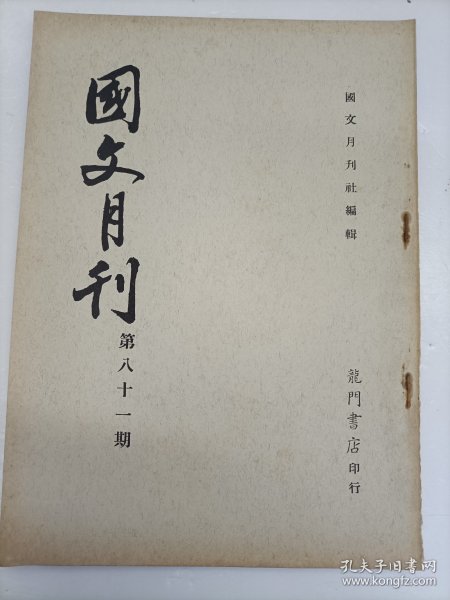 國文月刊社編輯
國文月刊
第八十一期
龍門書店印行
孔夫子旧书网
www.kongfz.com